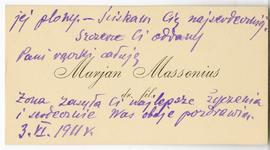 jej płoży. – Ściskam Cię najserdeczniej.
Szczerze Ci oddany
Pani rączki całuję
Marjan Massonius
dr. fil.
Żona zasyła Ci najlepsze życzenia
i serdecznie Was oboje pozdrawia.
3. VI. 1911 r.